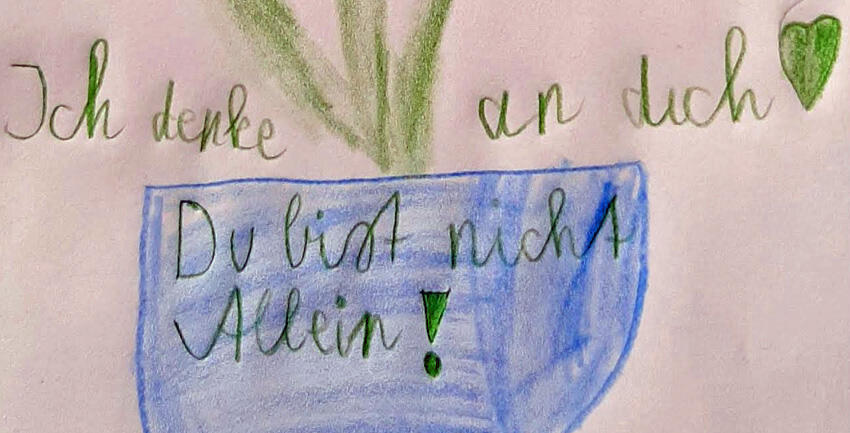 Ich denke an dich
Du bist nicht
Allein!